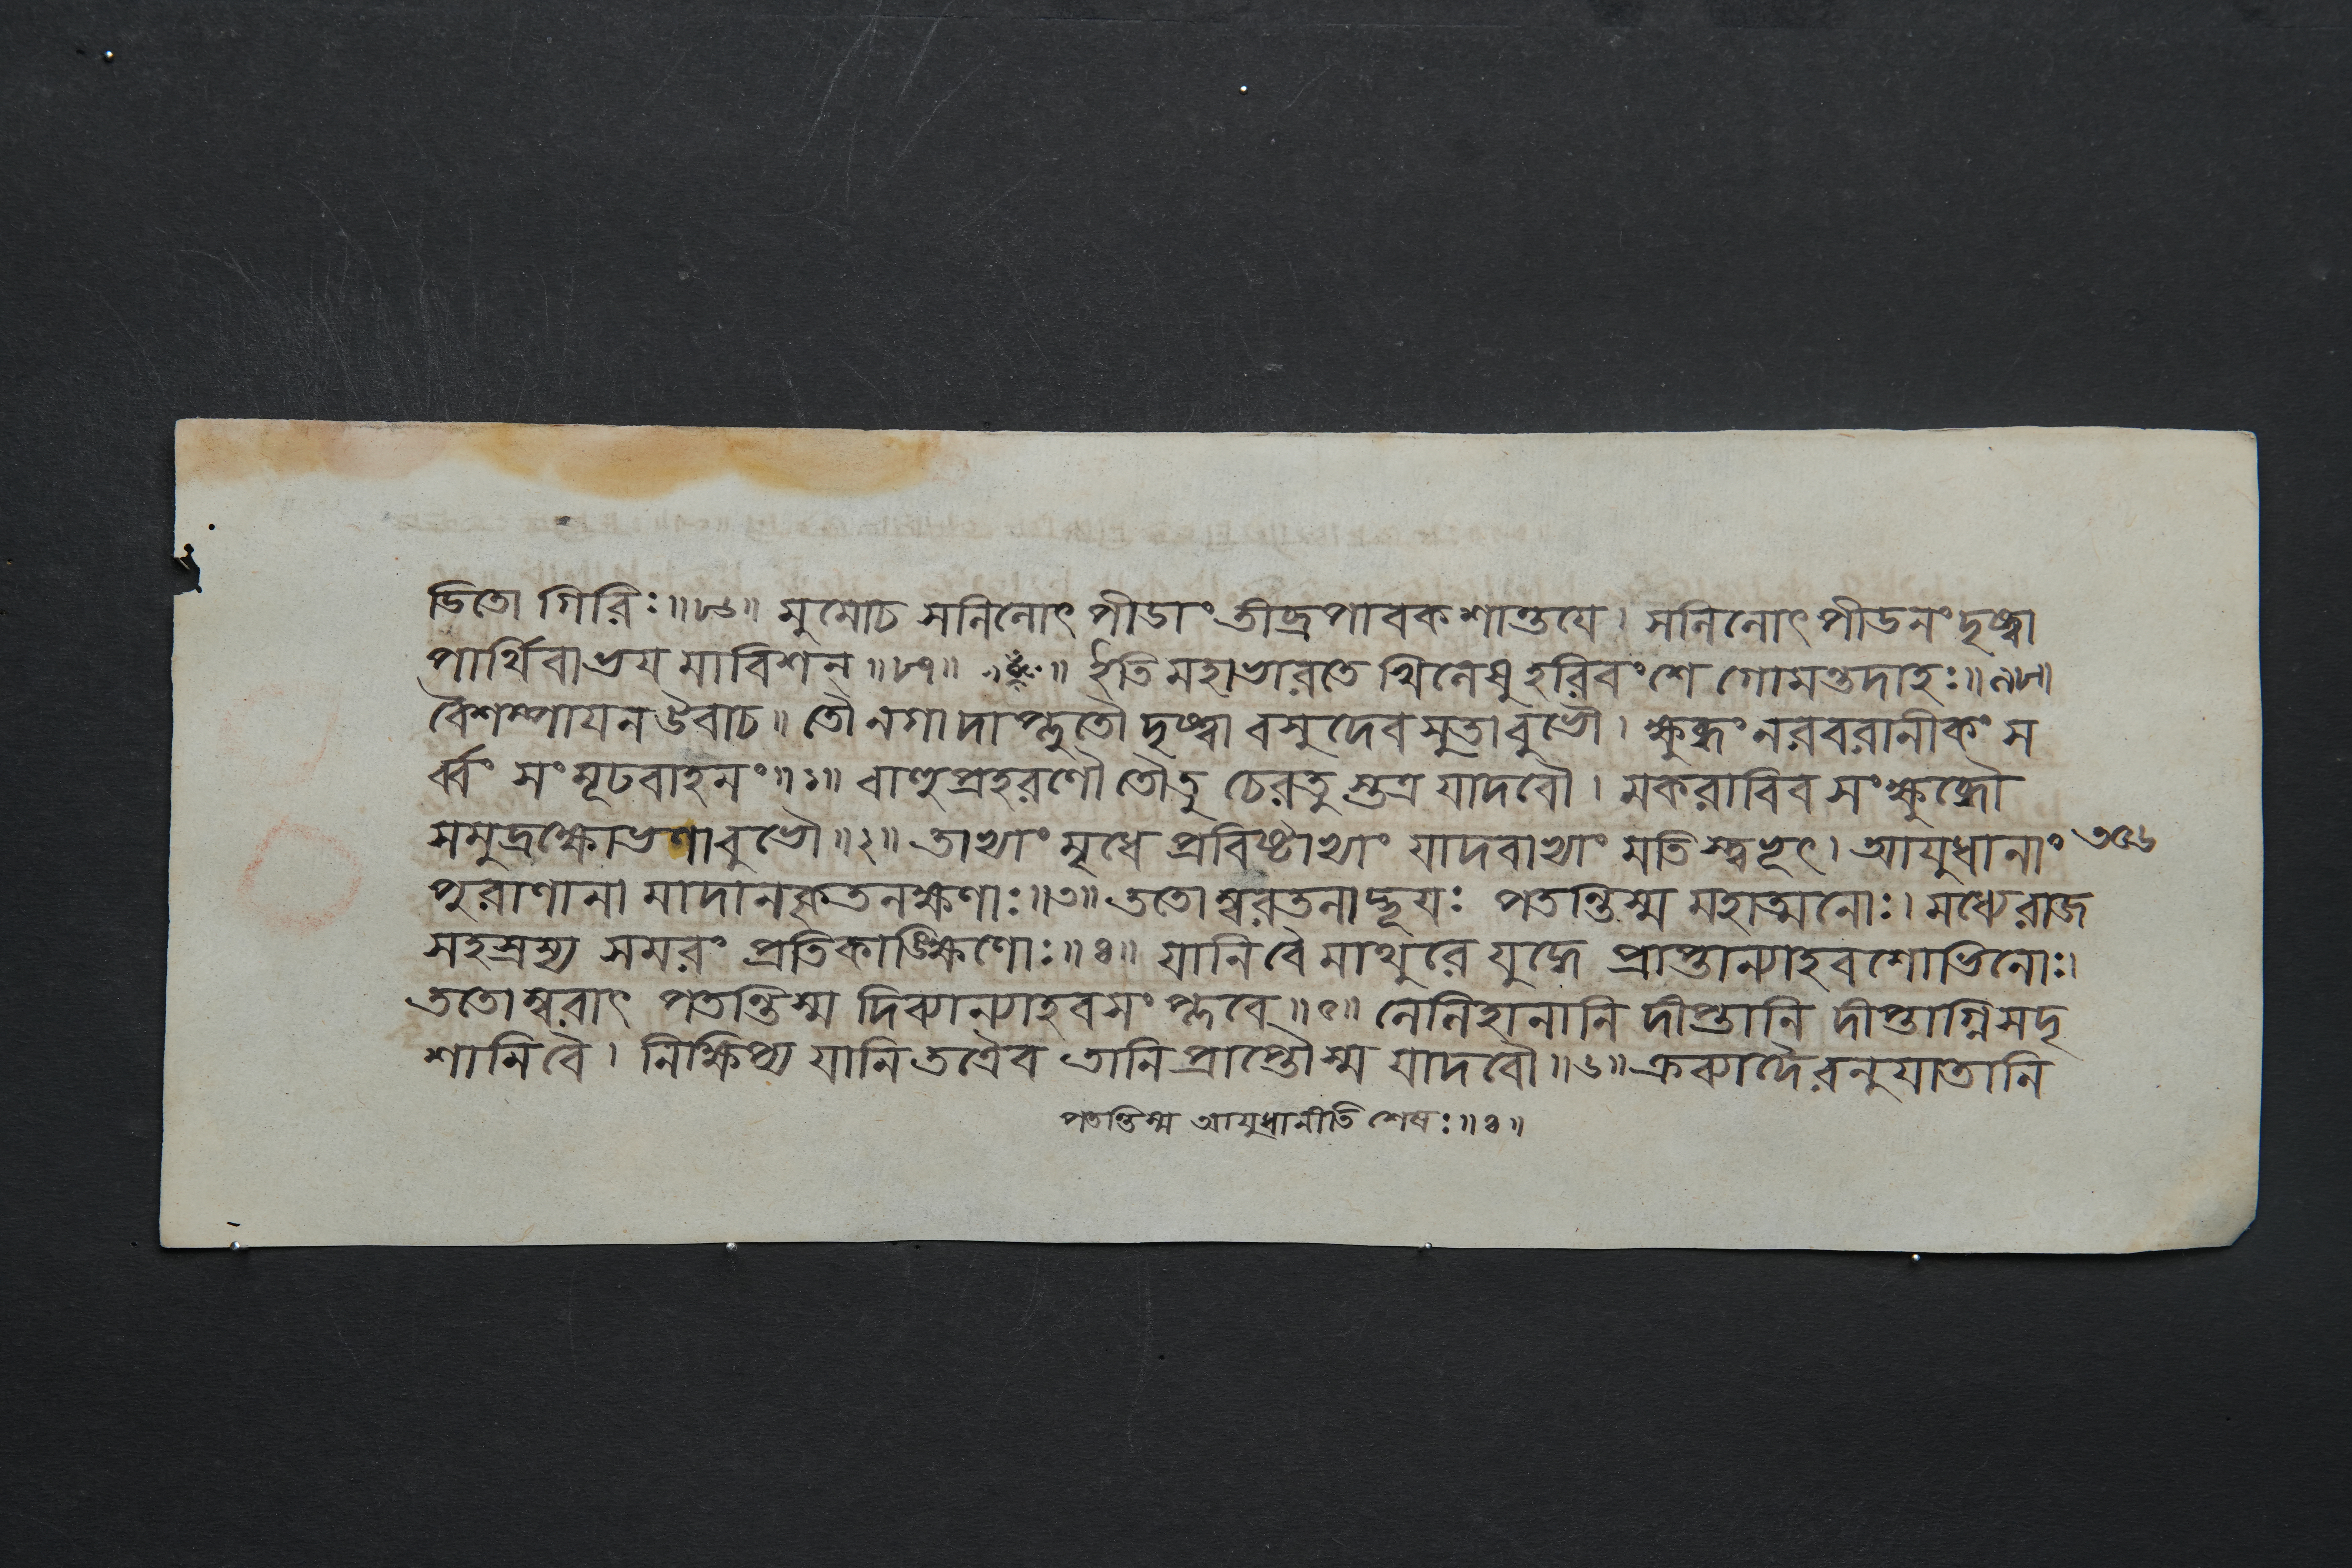 ডিতো গিরিঃ॥৮৬॥ মুমোচ সলিলোৎপীডাং তীব্রপাবকশান্তযে। সলিলোৎপীডনং দৃষ্ট্বা
পার্থিবা ভয মাবিশন্ ॥৮৭॥ ॥ ইতি মহাভারতে খিলেষু হরিবংশে গোমন্তদাহঃ॥৯৮॥
বৈশম্পাযন উবাচ॥ তৌ নগাদাপ্লুতৌ দৃষ্ট্বা বসুদেবসুতাবুভৌ। ক্ষুব্ধং নরবরানীকং স
র্ব্বং সংমূঢবাহনং॥১॥ বাহুপ্রহরণৌ তৌতু চেরতু স্তত্র যাদবৌ। মকরাবিব সংক্ষুব্ধৌ
সমুদ্রক্ষোভণাবুভৌ॥২॥ তাভ্যাং মৃধে প্রবিষ্টাভ্যাং যাদবাভ্যাং মতিস্ত্বভূৎ। আযুধানাং ৩৫৬
পুরাণানা মাদানকৃতলক্ষণাঃ॥৩॥ ততোম্বরতলাদ্ভূযঃ পতন্তিস্ম মহাত্মনোঃ। মধ্যে রাজ
সহস্রস্য সমরং প্রতিকাঙ্ক্ষিণোঃ॥৪॥ যানি বৈ মাথুরে যুদ্ধে প্রাপ্তান্যাহবশোভিনোঃ।
ততোম্বরাৎ পতন্তিস্ম দিব্যান্যাহবসংপ্লবে॥৫॥ লেলিহানানি দীপ্তানি দীপ্তাগ্নিসদৃ
শানি বৈ। নিক্ষিপ্য যানি তত্রৈব তানি প্রাপ্তৌস্ম যাদবৌ॥৬॥ ক্রব্যাদৈরনুযাতানি
পতন্তিস্ম আযুধানীতি শেষঃ॥৪॥